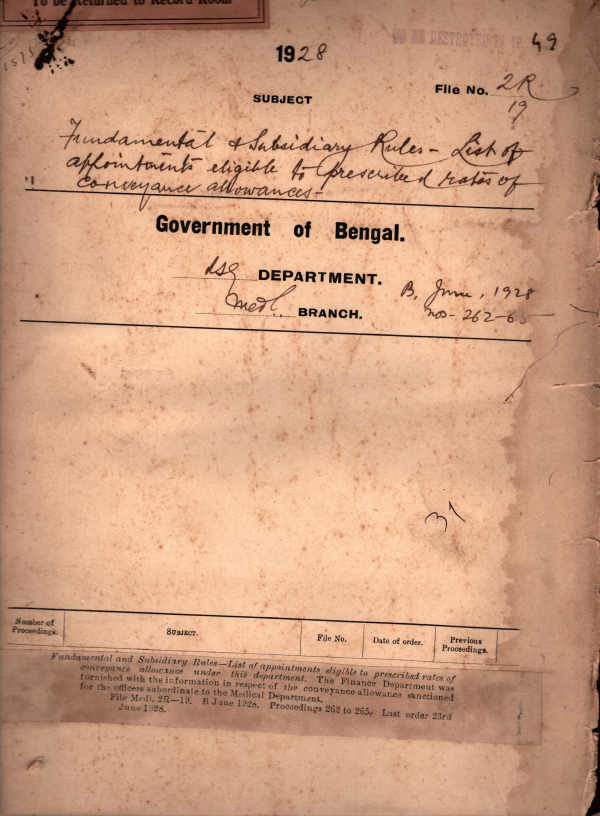 To be Returned to Record Room
TO BE DESTROYED IN 19 49
1928
File No. 2R
19
SUBJECT
Fundamental & Subsidiary Rules - List of
appointments eligible to prescribed rates of
conveyance allowances -
Government of Bengal.
LSG DEPARTMENT.
Medl. BRANCH.
B. June, 1928
nos - 262-65
31
Number of Proceedings.
SUBJECT.
File No.
Date of order.
Previous Proceedings.
Fundamental and Subsidiary Rules—List of appointments eligible to prescribed rates of
conveyance allowance under this department. The Finance Department was
furnished with the information in respect of the conveyance allowance sanctioned
for the officers subordinate to the Medical Department.
File Medl. 2R—19. B June 1928. Proceedings 262 to 265. Last order 23rd
June 1928.